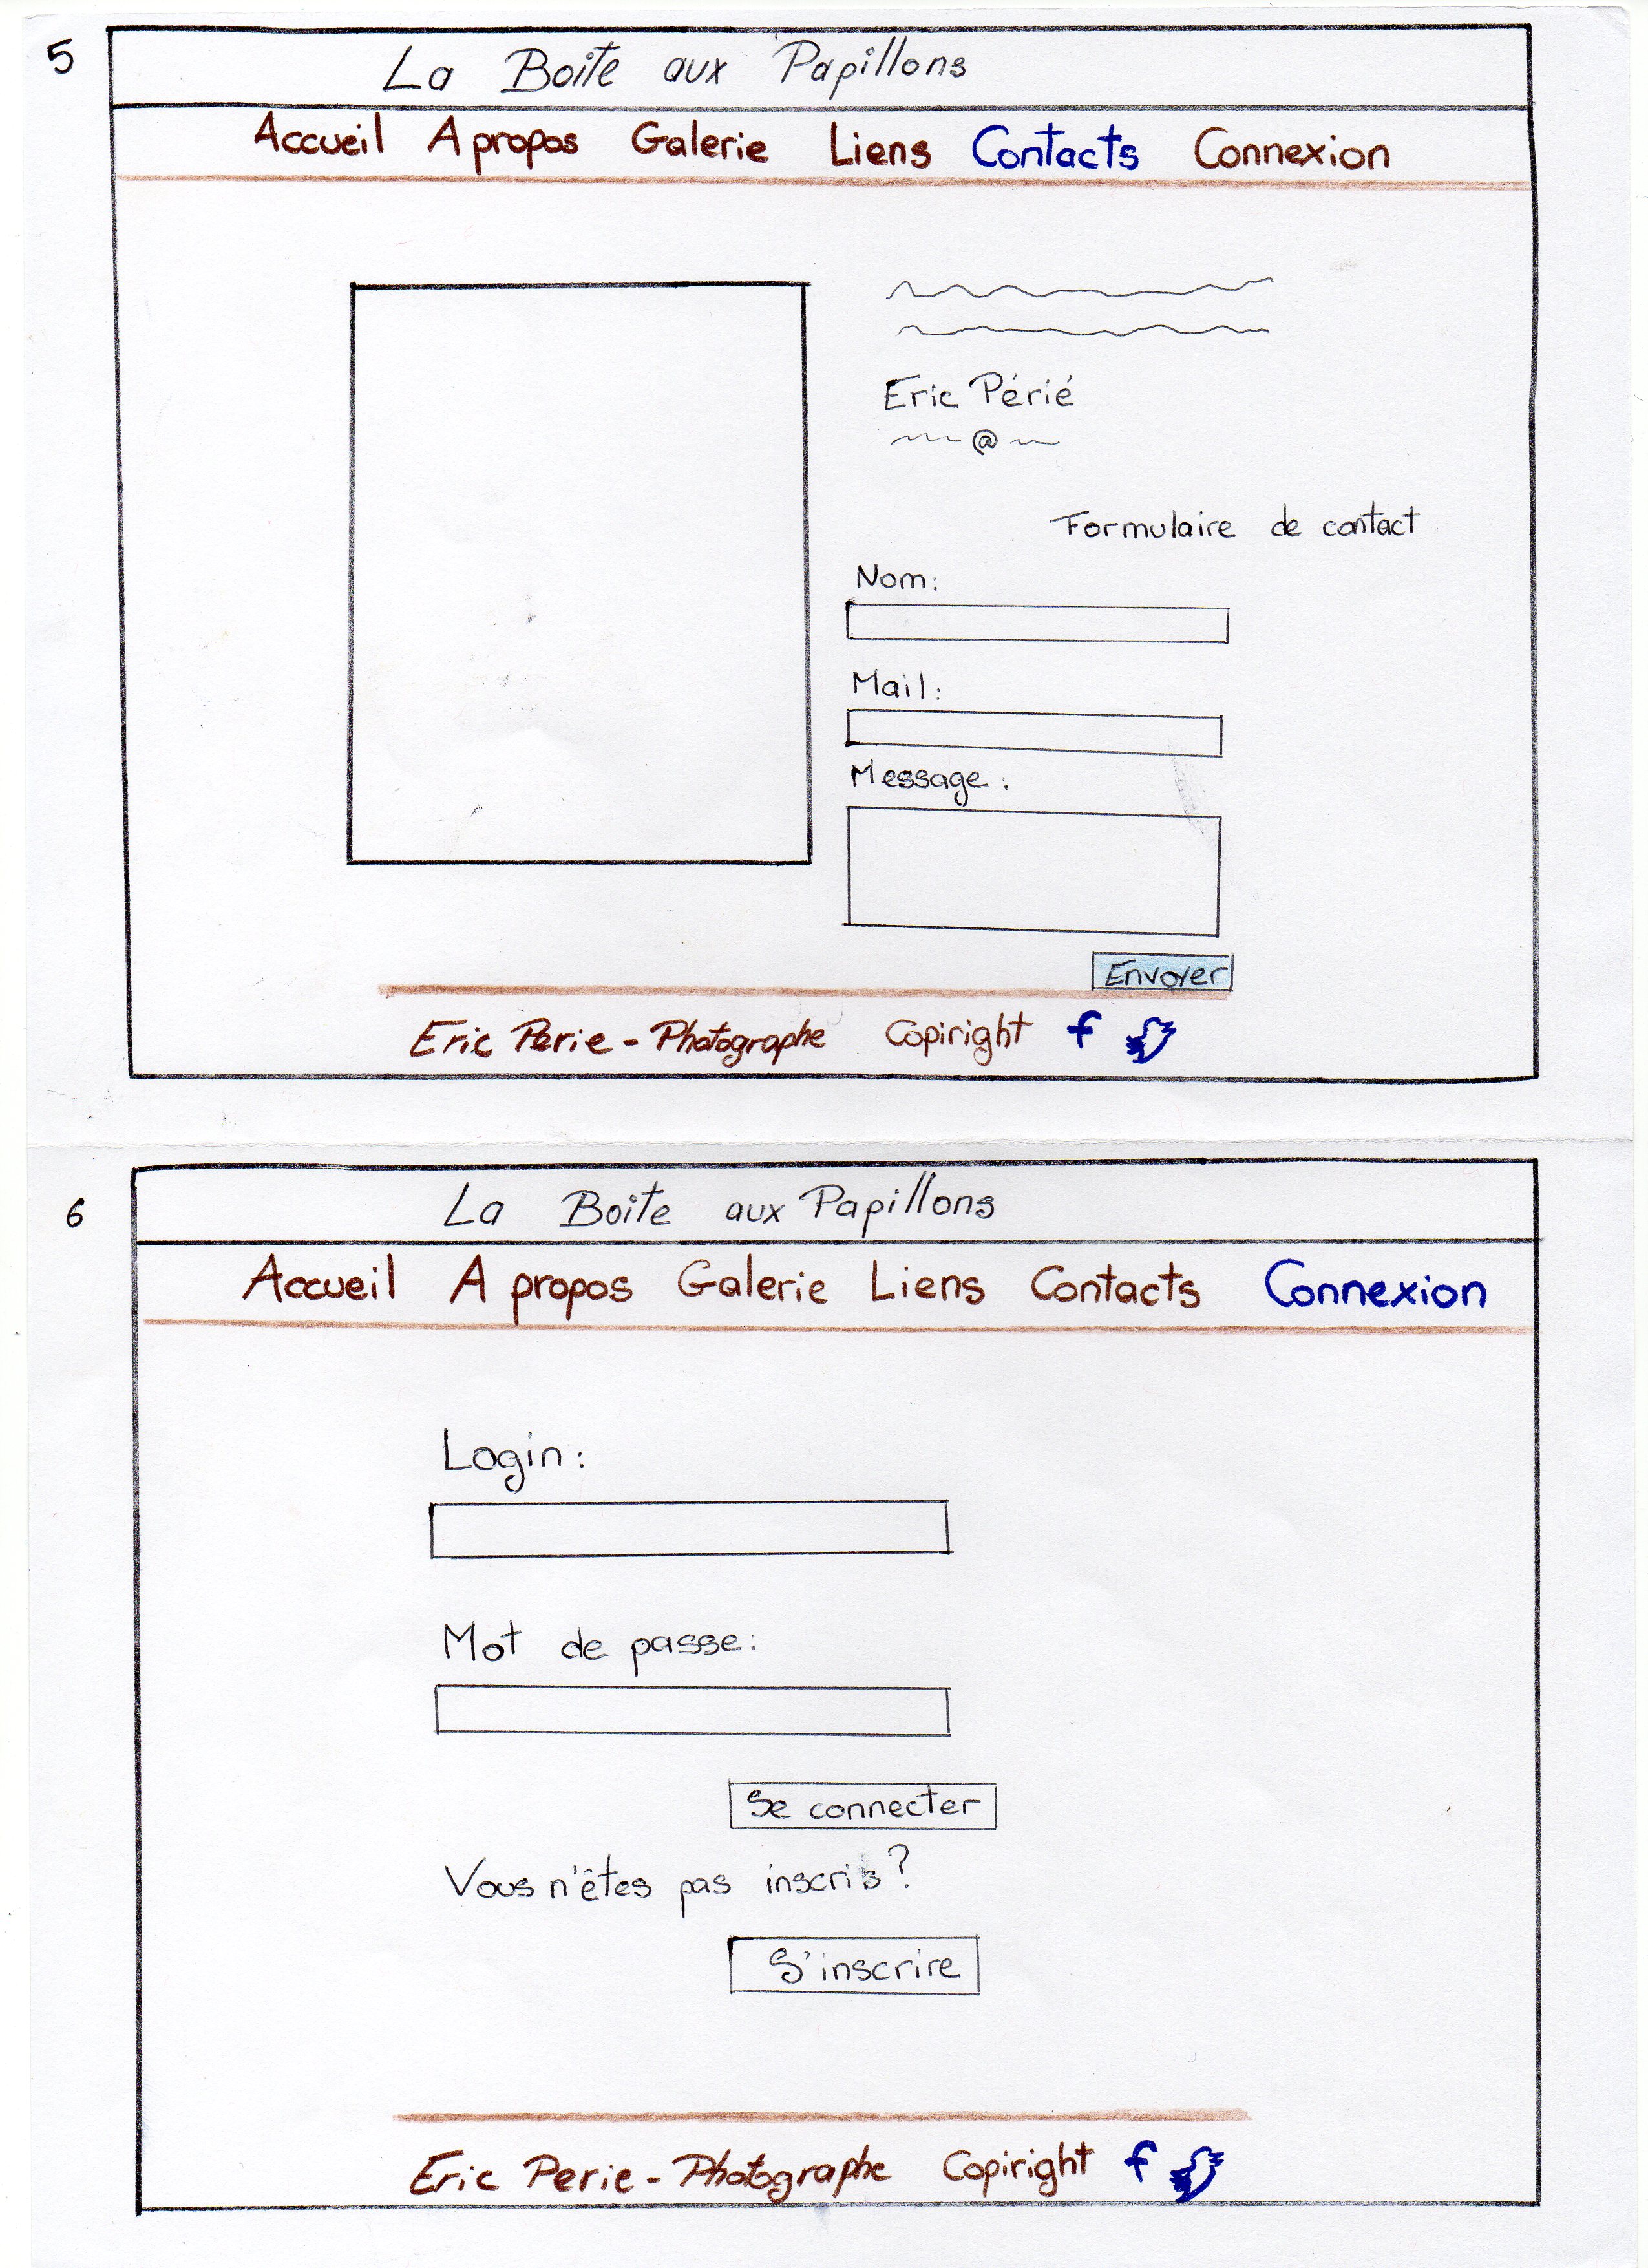 5
La Boite aux Papillons
Accueil A propos Galerie Liens Contacts Connexion
Eric Périé
@
Formulaire de contact
Nom:
Mail:
Message:
Envoyer
Eric Perie - Photographe Copiright f
6
La Boite aux Papillons
Accueil A propos Galerie Liens Contacts Connexion
Login:
Mot de passe:
Se connecter
Vous n'êtes pas inscris?
S'inscrire
Eric Perie - Photographe Copiright f